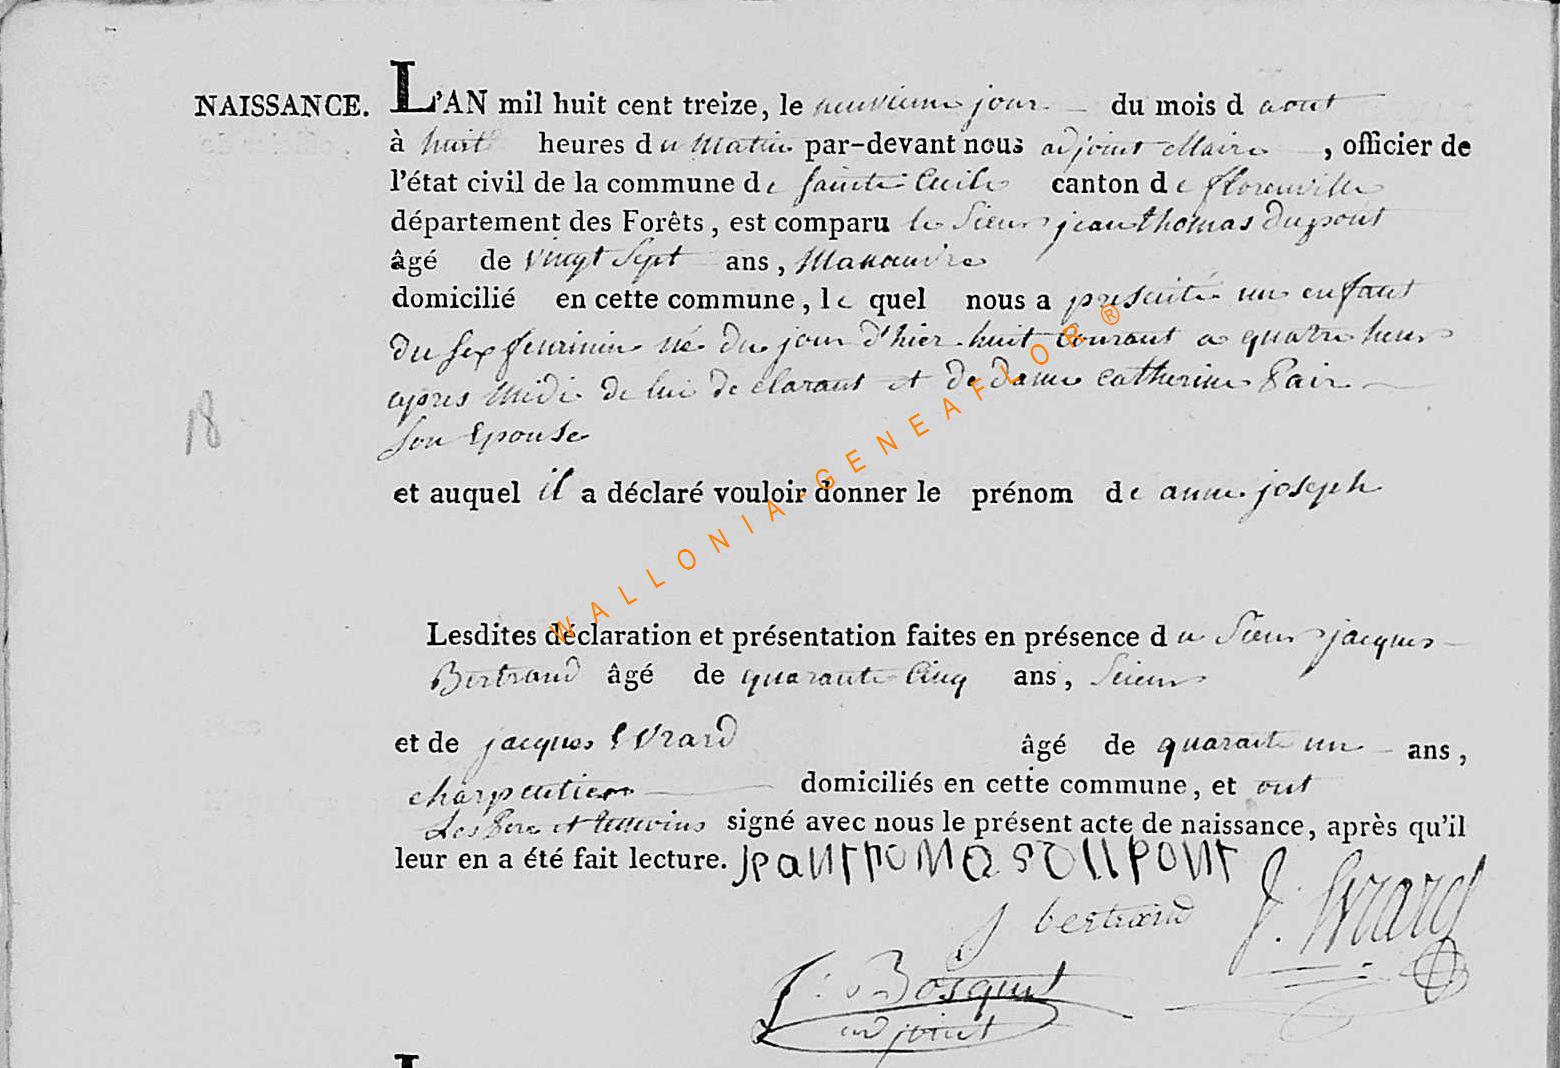 NAISSANCE. L'AN mil huit cent treize, le neuvieme jour du mois d aout
à huit heures du Matin par-devant nous adjoint Maire, officier de
l'état civil de la commune de sainte Cecile canton de florenville
département des Forêts, est comparu le Sieur jean thomas dupont
âgé de vingt Sept ans, Manoeuvre
domicilié en cette commune, le quel nous a presenté un enfant
du sex feminin né du jour d'hier huit courant a quatre heur
apres Midi de lui declarant et de dame Catherine Pair
18
son Epouse
et auquel il a déclaré vouloir donner le prénom de anne joseph
WALLONIA-GENEAFLOR ®
Lesdites déclaration et présentation faites en présence du Sieur jacques
Bertrand âgé de quarante Cinq ans, Scieur
et de jacques Evrard âgé de quarante un ans,
charpentier domiciliés en cette commune, et ont
Les Pere et temoins signé avec nous le présent acte de naissance, après qu'il
leur en a été fait lecture. jean tomas dupont
J bertrand J. Evrard
J. Bosquet
adjoint